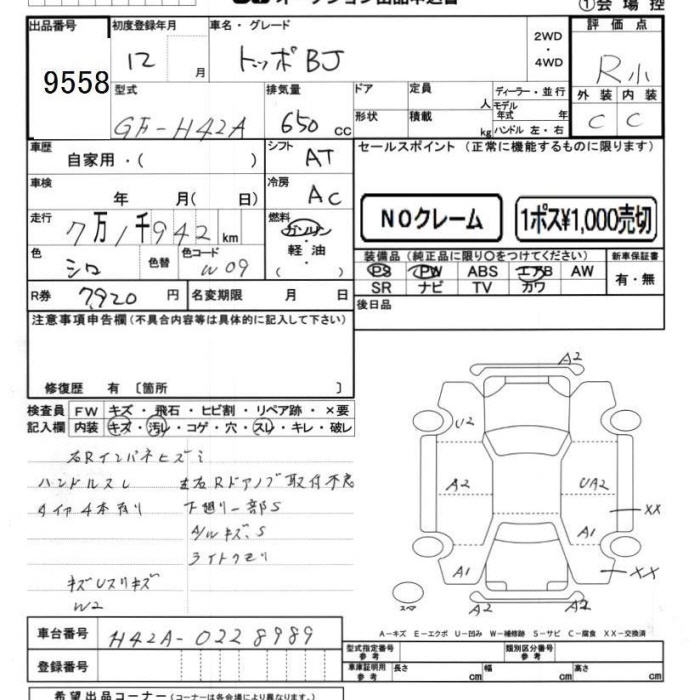 オークション出品申込書
①会場控
出品番号
9558
初度登録年月
12 月
車名・グレード
トッポBJ
2WD
・
4WD
評価点
R小
型式
GF-H42A
排気量
650 cc
ドア
形状
定員 人
積載 kg
ディーラー・並行
モデル
年式 年
ハンドル 左・右
外装 内装
C C
車歴
自家用・( )
シフト AT
セールスポイント (正常に機能するものに限ります)
車検
年 月( 日)
冷房 AC
NOクレーム
1ポス¥1,000売切
走行
7万1千942 km
燃料
ガソリン
軽・油
( ・ )
色
シロ
色替
色コード
W09
装備品 (純正品に限り〇をつけてください)
新車保証書
PS PW ABS エアB AW
有・無
SR ナビ TV カワ
R券 7,920 円
名変期限 月 日
後日品
注意事項申告欄 (不具合内容等は具体的に記入して下さい)
修復歴 有 〔箇所 〕
検査員 FW キズ・飛石・ヒビ割・リペア跡・×要
記入欄 内装 キズ・汚レ・コゲ・穴・スレ・キレ・破レ
右Rインパネヒズミ
ハンドルスレ 左右Rドアノブ取付不良
タイヤ4本有り 下廻り一部S
A/Wキズ、S
ライトクモリ
キズUスリキズ
W2
A2
U2
A2
UA2
XX
A1
A1
XX
スマ
A2
A2
A-キズ E-エクボ U-凹み W-補修跡 S-サビ C-腐食 XX-交換済
車台番号 H42A-0228989
型式指定番号
参考
類別区分番号
参考
登録番号
車庫証明用
参考
長さ cm
幅 cm
高さ cm
希望出品コーナー (コーナーは各会場により異なります。)